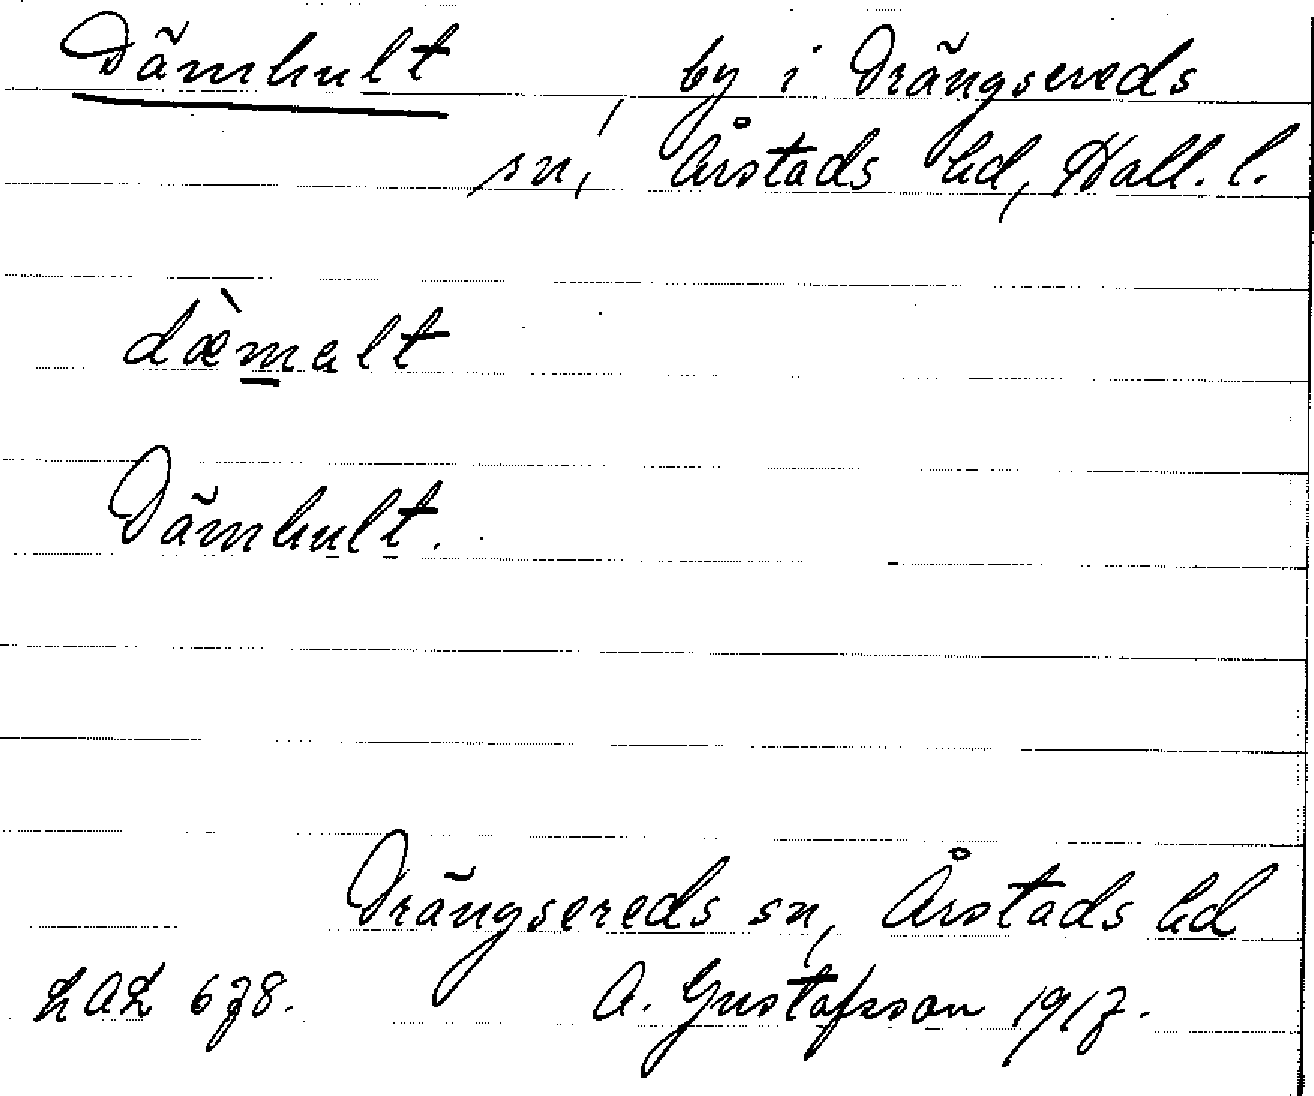 Dämhult, by i Drängsereds
sn, Årstads hd, Hall. l.
dæ̀malt
Dämhult.
Drängsereds sn, Årstads hd
LAL 678. A. Gustafsson 1917.